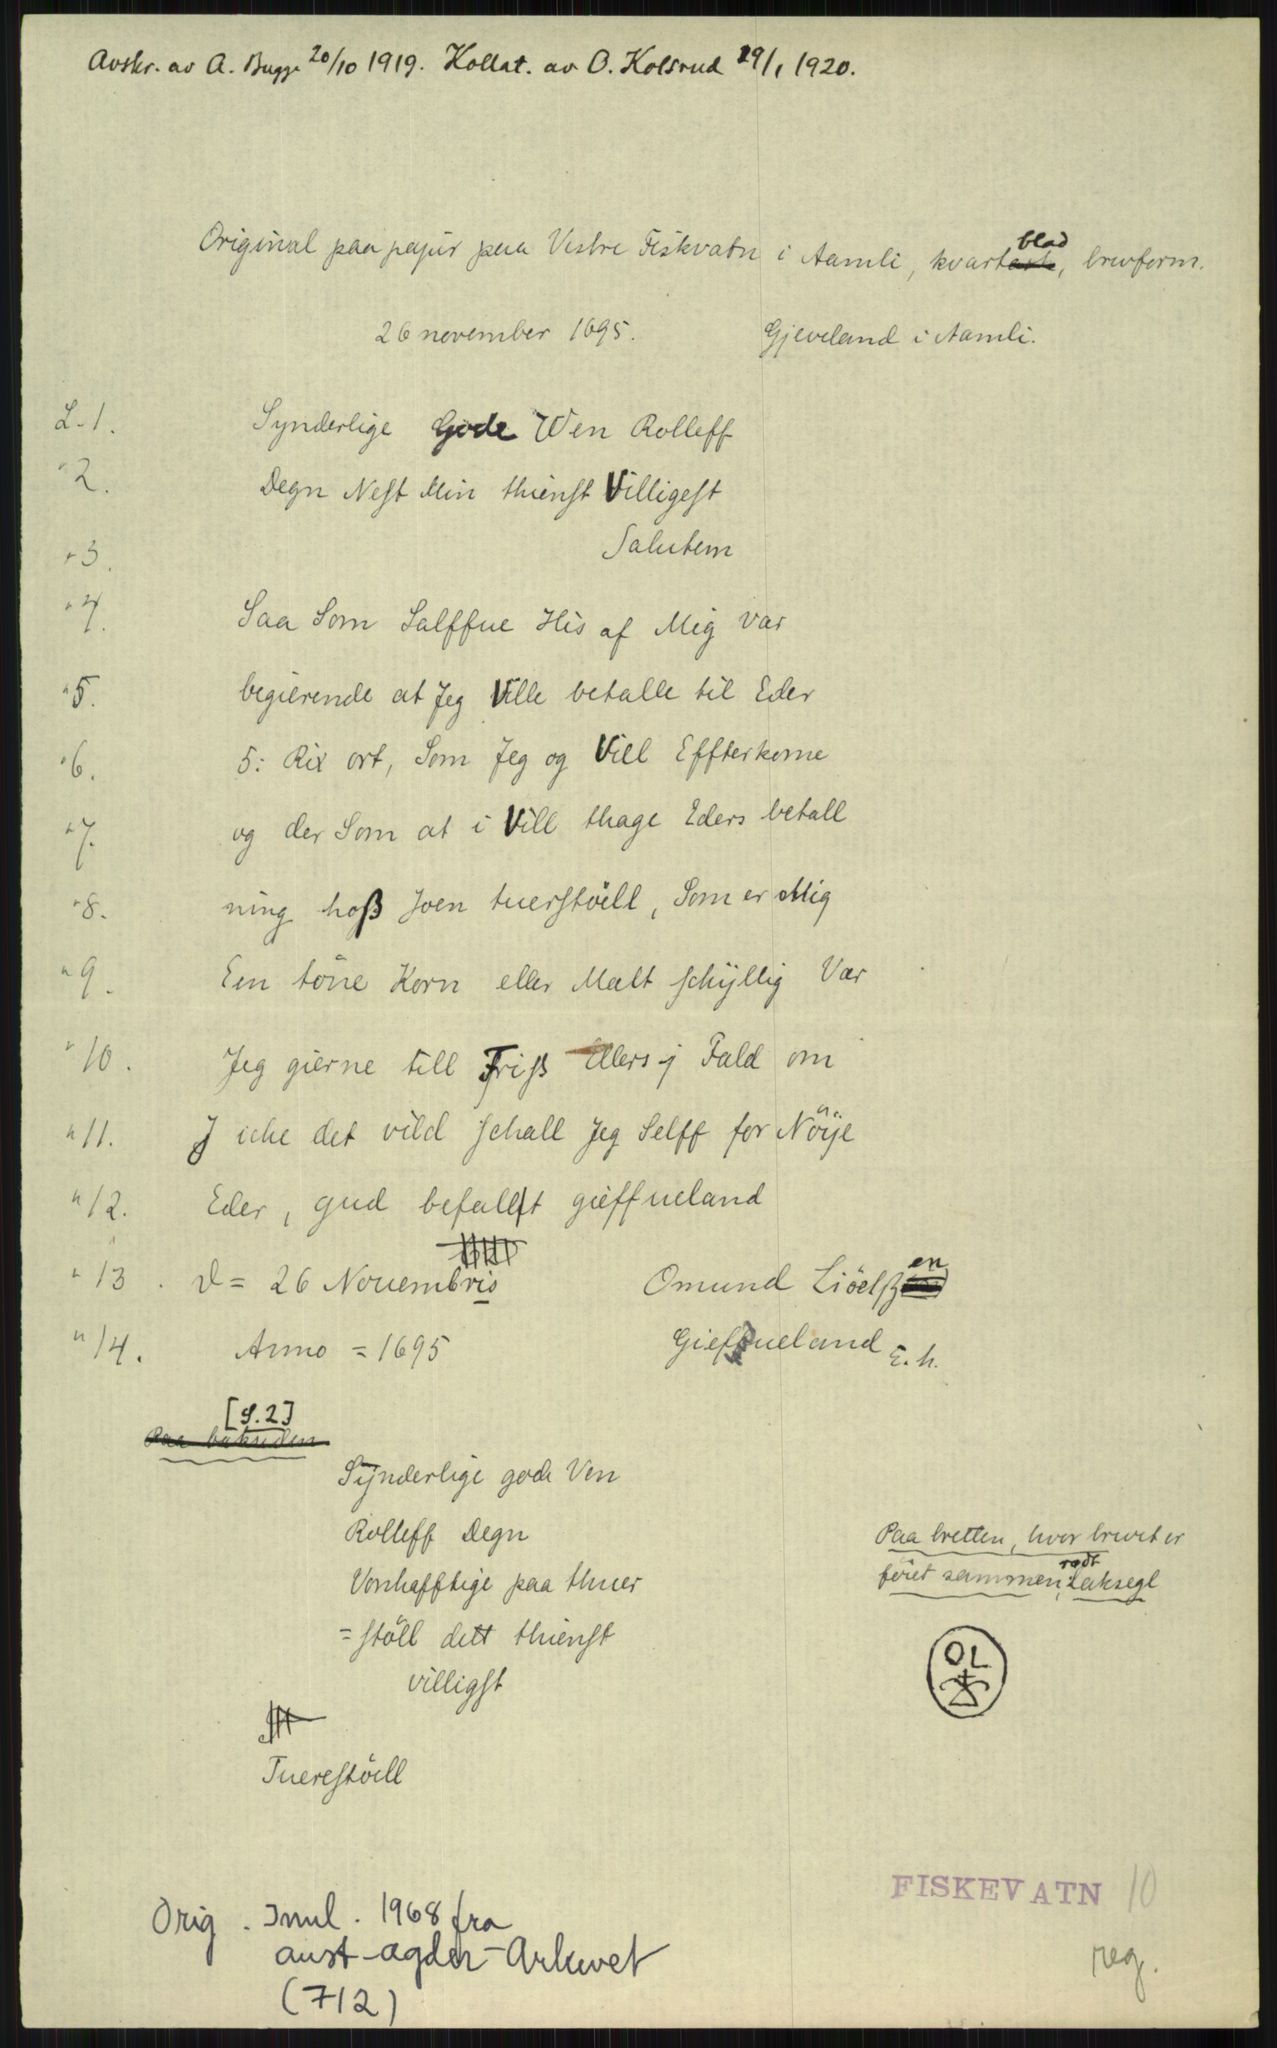 Avskr. av A. Bugge 20/10 1919. Kollat. av O. Kolsrud 29/1 1920.
Original paa papir paa Vestre Fiskvatn i Aamli, kvartblad, brevform.
26 november 1695. Gjeveland i Aamli.
L. 1. Synderlige Gode Wen Rolleff
" 2. Degn Nest Min thienst Villigest
" 3. Salutem
" 4. Saa Som Salffue His af Mig var
" 5. begierende at Jeg Ville betalle til Eder
" 6. 5: Rix ort, Som Jeg og Vill Effterkome
" 7. og der Som at i Vill thage Eders betall
" 8. ning hoß Joen tuerstöell, Som er Mig
" 9. Een töne Korn eller Malt schyllig Var
" 10. Jeg gierne till Friß Ellers j Fald om
" 11. J iche det vild schall Jeg Selff for Nöÿe
" 12. Eder, gud befallt gieffueland
" 13. d = 26 Nouembris Omund Liöelßen
" 14. Anno = 1695 Gieffueland E. h.
[S. 2]
Paa baksiden
Sÿnderlige gode Ven
Rolleff Degn
Vonhafftige paa thuer
= stöll dett thienst
villigst
Tuerestöell
Paa bretten, hvor brevet er
föiet sammen, rødt Laksegl
OL
FISKEVATN 10
reg.
Orig. Innl. 1968 fra
Aust-Agder-Arkivet
(712)